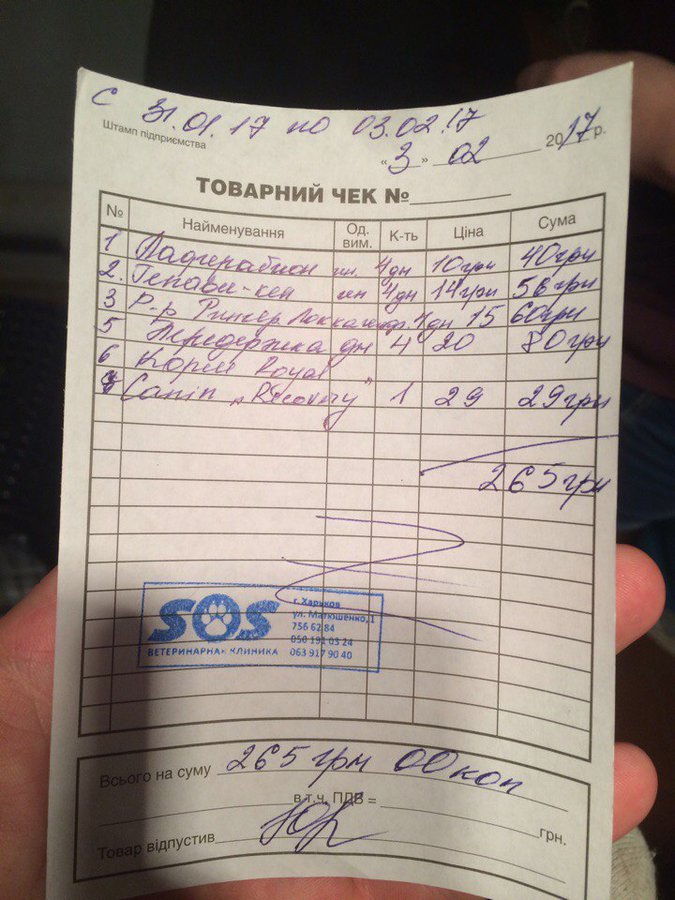 с 31.01.17 по 03.02.17
Штамп підприємства
«3» 02 2017 р.
ТОВАРНИЙ ЧЕК №
№ Найменування Од. вим. К-ть Ціна Сума
1 4дн 10грн 40грн
2. Гепави-кел 4дн 14грн 56грн
3 Р-р Рингер 4дн 15 60грн
5 Передержка дн 4 20 80грн
6 Корм Royal
7 Canin „Recovery" 1 29 29грн
265грн
SOS
ВЕТЕРИНАРНАЯ КЛИНИКА
г. Харьков
ул. Матюшенко,1
756 62 84
050 191 03 24
063 917 90 40
Всього на суму 265 грн 00 коп
в т.ч. ПДВ = грн.
Товар відпустив